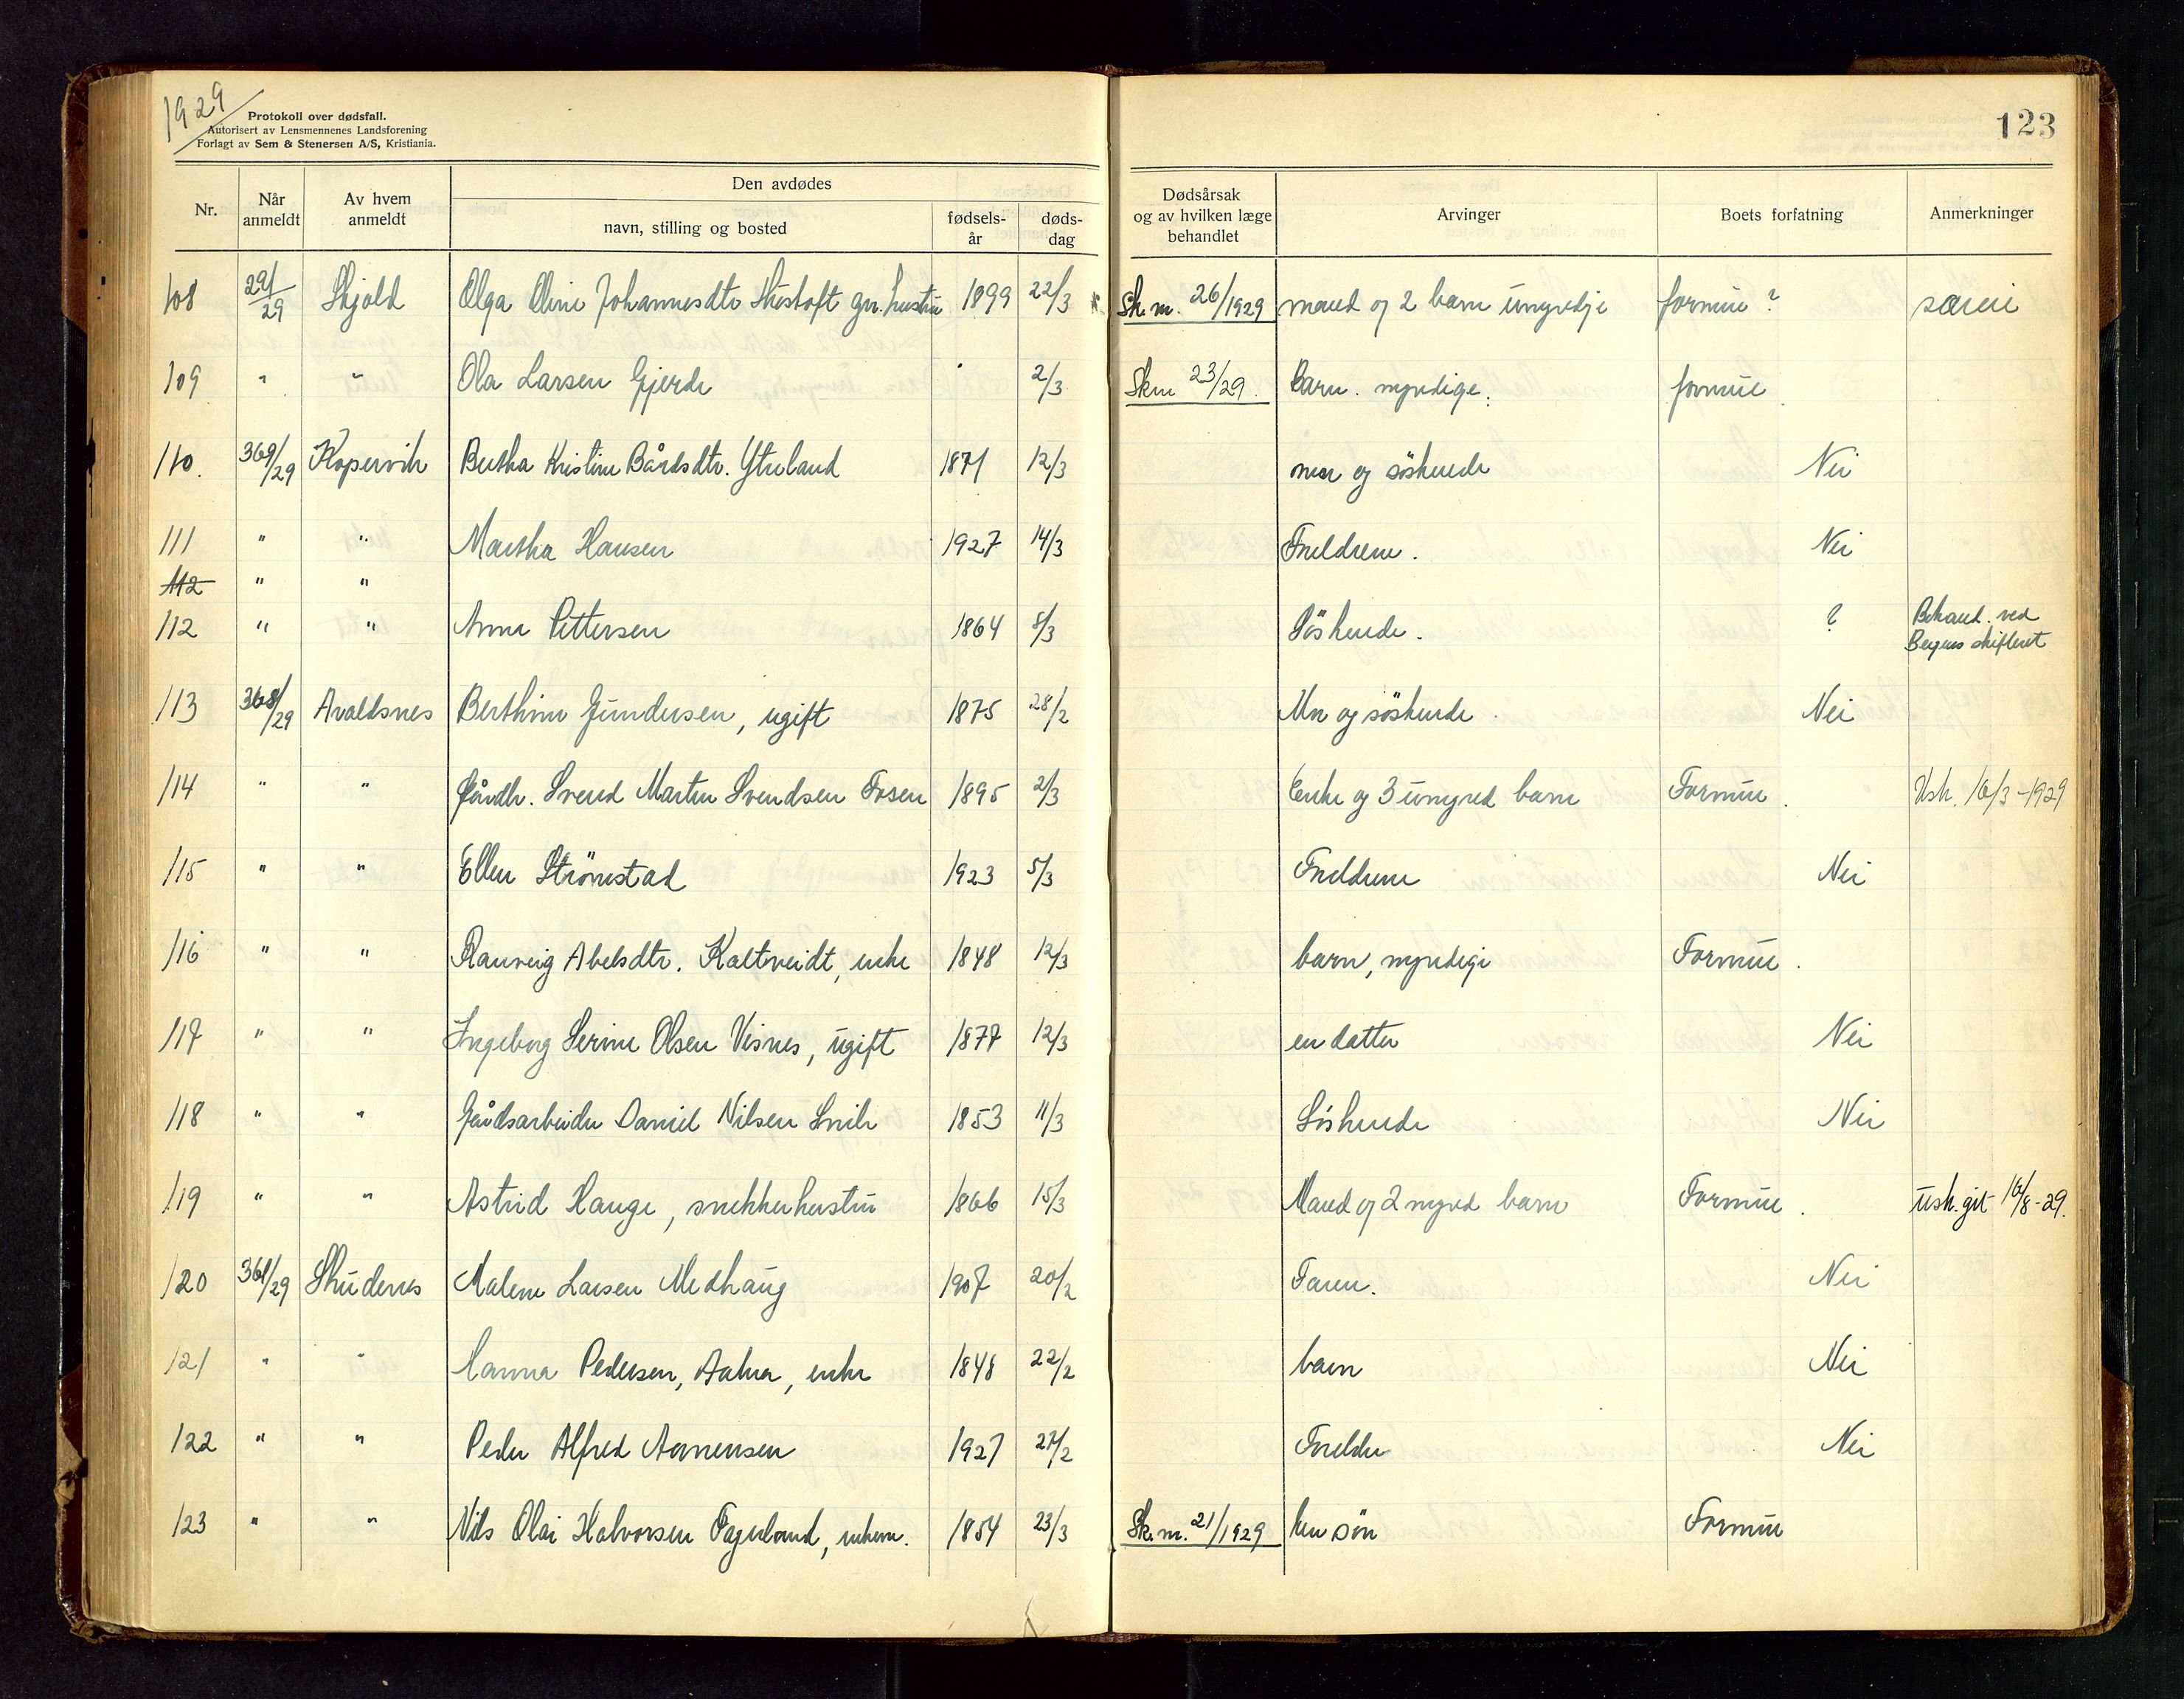 1929
Protokoll over dødsfall.
Autorisert av Lensmennenes Landsforening
Forlagt av Sem & Stenersen A/S, Kristiania.
123
Nr. Når anmeldt Av hvem anmeldt Den avdødes navn, stilling og bosted fødsels-år døds-dag Dødsårsak og av hvilken læge behandlet Arvinger Boets forfatning Anmerkninger
108 291/29 Skjold Olga Oline Johannesdtr gm. hustru 1899 22/3 Sk.m. 26/1929 mand og 2 barn formue ?
109 " " Ola Larsen Gjerde " 2/3 Skm 23/29. Barn. myndige. formue
110. 369/29 Kopervik Bertha Kristine Bårdsdtr. Ytreland 1871 12/3 mor og söskende Nei
111 " " Martha Hansen 1927 14/3 Foreldrene. Nei
112 " "
112 " " Anna Pettersen 1864 8/3 Söskende. ? Behand. ved
Bergens skifteret
113 368/29 Avaldsnes Berthine Gundersen, ugift 1875 28/2 Mor og söskende. Nei
114 " " Gårdbr. Svend Martin Svendsen Fosen 1895 2/3 Enke og 3 umynd barn Formue. Usk. 16/3-1929
115 " " Ellen Strömstad 1923 5/3 Foreldrene Nei
116 " " Ranveig Abelsdtr. Kaltveidt, enke 1848 12/3 barn, myndige Formue.
117 " " Ingeborg Serine Olsen Visnes, ugift 1877 12/3 en datter Nei
118 " " Gårdsarbeider Daniel Nilsen Snik 1853 11/3 Söskende Nei
119 " " Astrid Hauge, snekkerhustru 1866 15/3 Mand og 2 mynd barn Formue. Usk. git 16/8-29.
120 361/29 Skudenes Malene Larsen Medhaug 1907 20/2 Faren. Nei
121 " " Hanna Pedersen, enke 1848 22/2 barn Nei
122 " " Peder Alfred Aamensen 1927 27/2 Foreldre Nei
123 " " Nils Olai Halvorsen Fagerland, enkem. 1854 23/3 Sk.m. 21/1929 En sön Formue